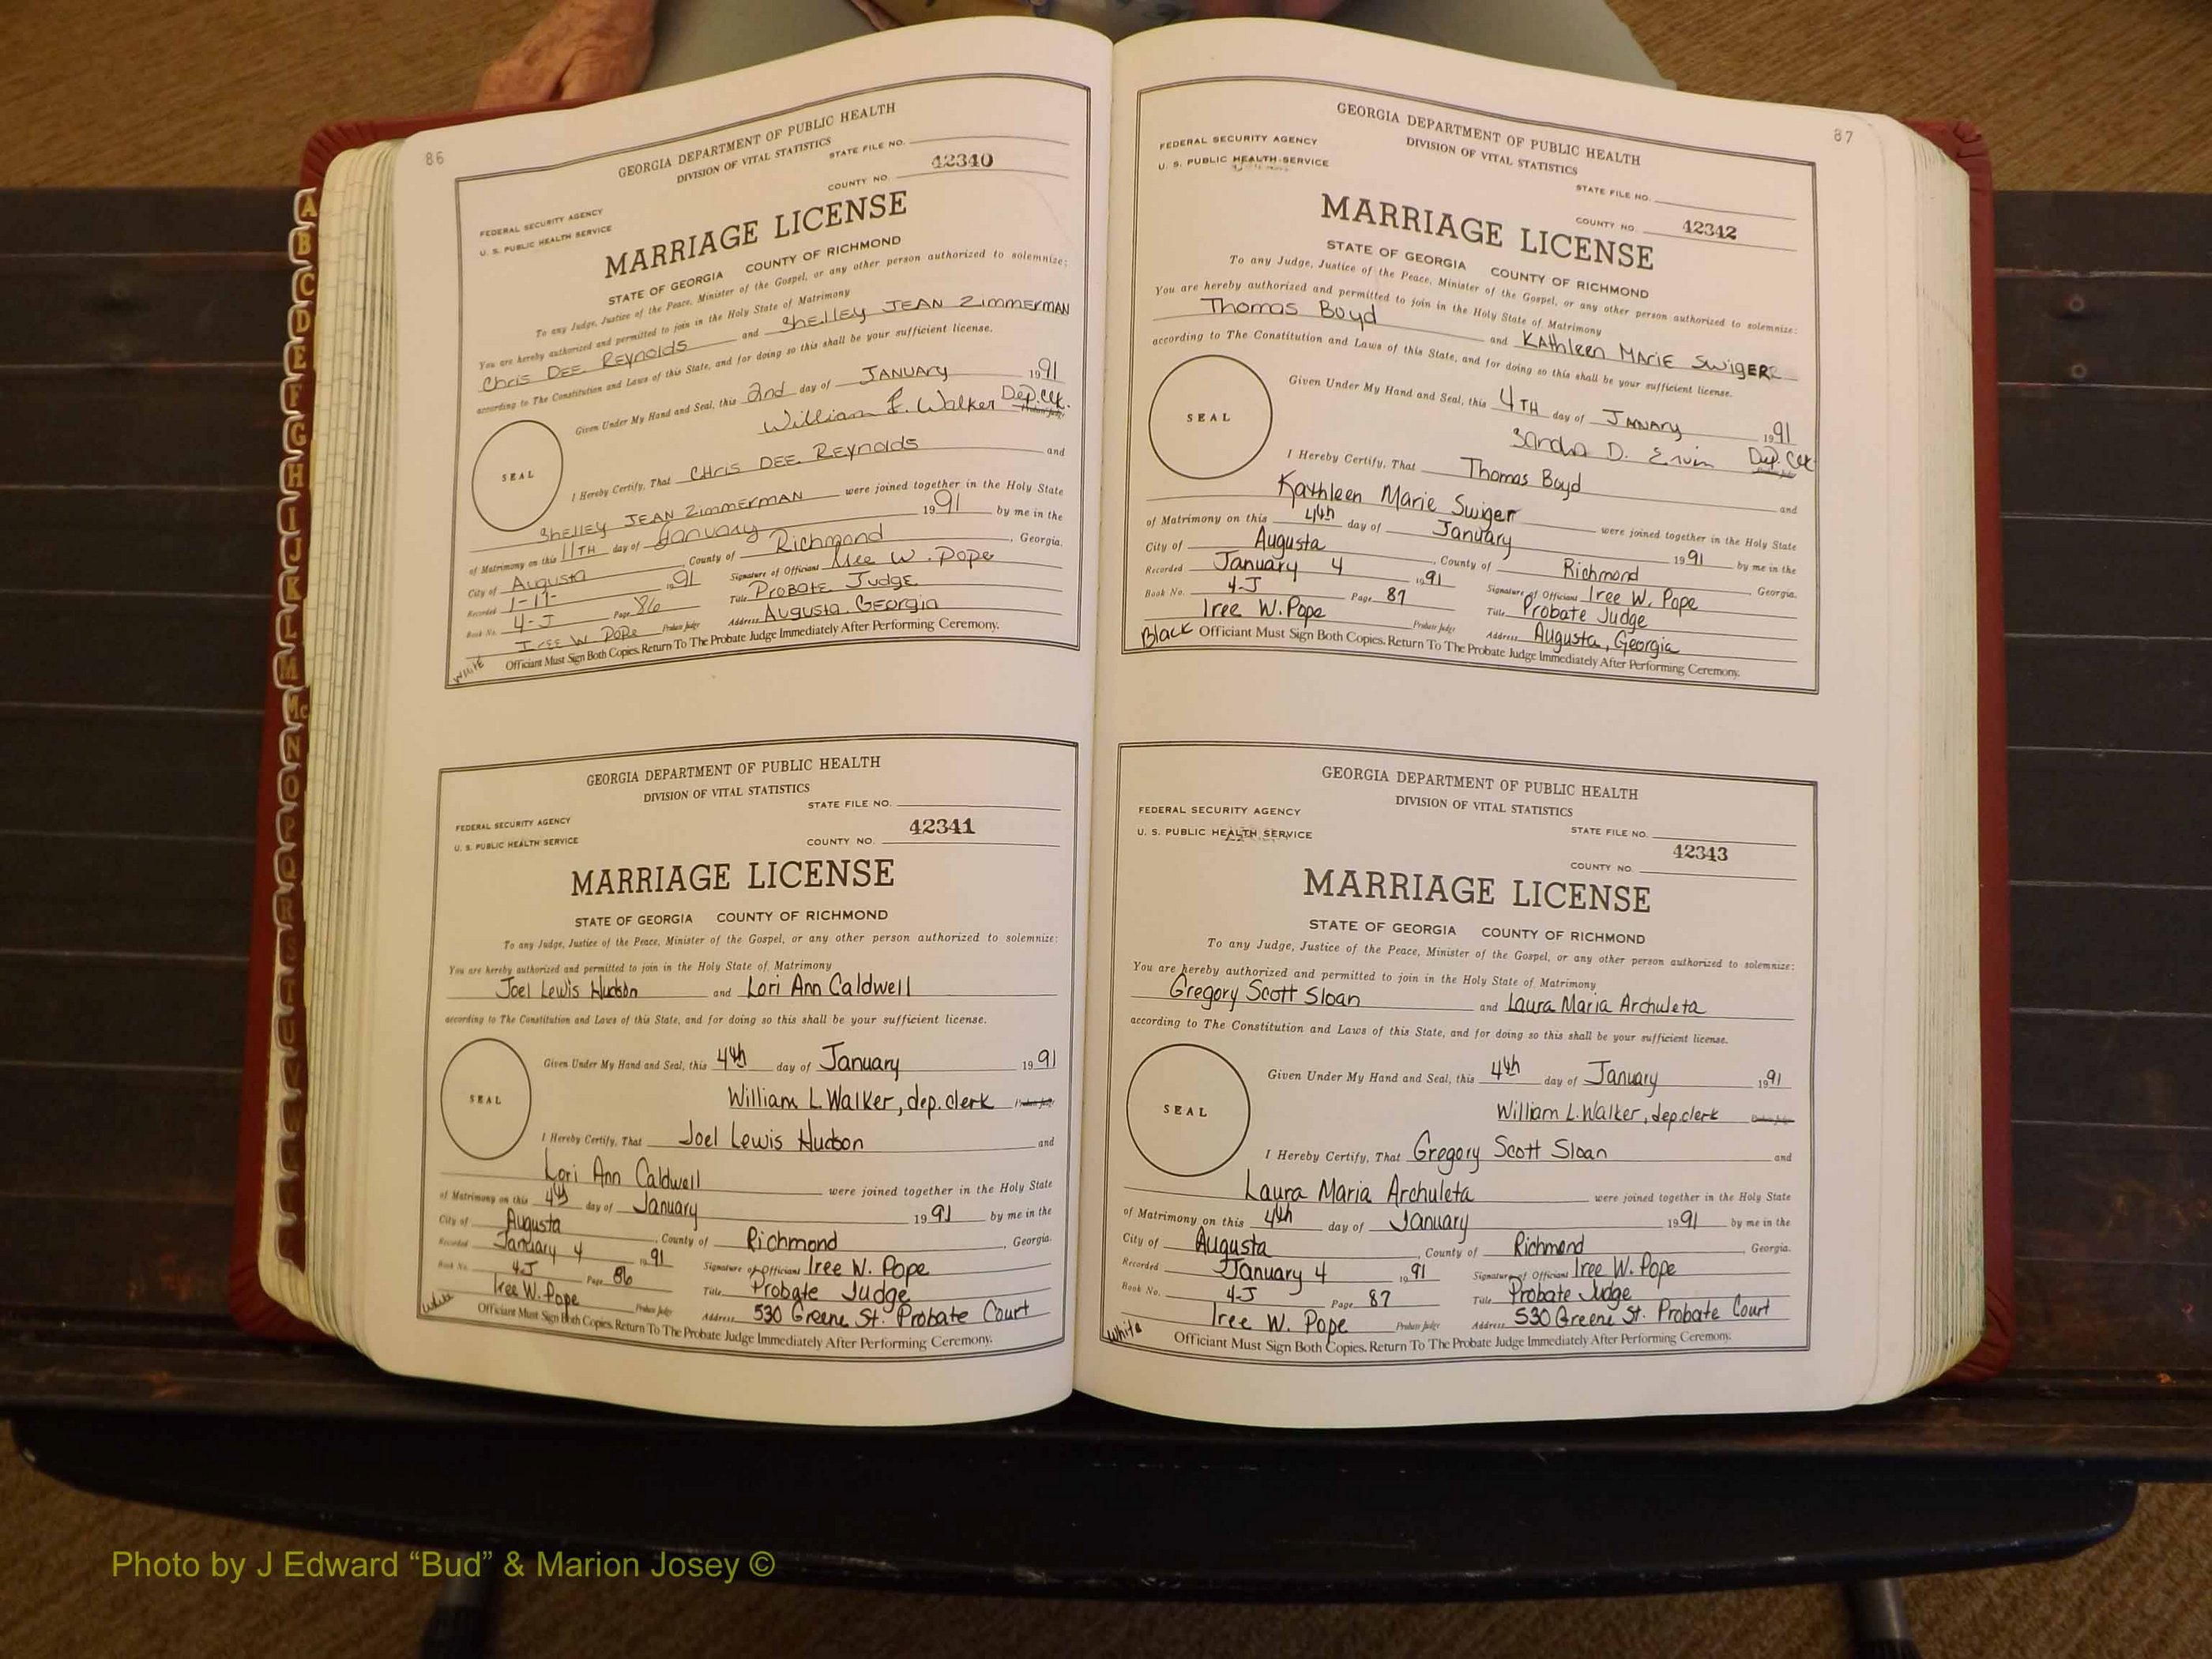 86
GEORGIA DEPARTMENT OF PUBLIC HEALTH
DIVISION OF VITAL STATISTICS
STATE FILE NO.
FEDERAL SECURITY AGENCY
U. S. PUBLIC HEALTH SERVICE
COUNTY NO. 42340
MARRIAGE LICENSE
STATE OF GEORGIA COUNTY OF RICHMOND
To any Judge, Justice of the Peace, Minister of the Gospel, or any other person authorized to solemnize:
You are hereby authorized and permitted to join in the Holy State of Matrimony
Chris DEE Reynolds and Shelley JEAN Zimmerman
according to The Constitution and Laws of this State, and for doing so this shall be your sufficient license.
Given Under My Hand and Seal, this 2nd day of JANUARY 1991
William L. Walker Dep. Clk.
SEAL
I Hereby Certify, That CHris DEE Reynolds and
Shelley JEAN Zimmerman were joined together in the Holy State
of Matrimony on this 11TH day of January 1991 by me in the
City of Augusta, County of Richmond, Georgia.
Recorded 1-11- 1991 Signature of Officiant Iree W. Pope
Book No. 4-J Page 86 Title Probate Judge
Iree W Pope Probate Judge Address Augusta, Georgia
White Officiant Must Sign Both Copies. Return To The Probate Judge Immediately After Performing Ceremony.
GEORGIA DEPARTMENT OF PUBLIC HEALTH
DIVISION OF VITAL STATISTICS
STATE FILE NO.
FEDERAL SECURITY AGENCY
U. S. PUBLIC HEALTH SERVICE
COUNTY NO. 42341
MARRIAGE LICENSE
STATE OF GEORGIA COUNTY OF RICHMOND
To any Judge, Justice of the Peace, Minister of the Gospel, or any other person authorized to solemnize:
You are hereby authorized and permitted to join in the Holy State of Matrimony
Joel Lewis Hudson and Lori Ann Caldwell
according to The Constitution and Laws of this State, and for doing so this shall be your sufficient license.
Given Under My Hand and Seal, this 4th day of January 1991
William L. Walker, dep. clerk Probate Judge
SEAL
I Hereby Certify, That Joel Lewis Hudson and
Lori Ann Caldwell were joined together in the Holy State
of Matrimony on this 4th day of January 1991 by me in the
City of Augusta, County of Richmond, Georgia.
Recorded January 4 1991 Signature of Officiant Iree W. Pope
Book No. 4-J Page 86 Title Probate Judge
Iree W. Pope Probate Judge Address 530 Greene St. Probate Court
White Officiant Must Sign Both Copies. Return To The Probate Judge Immediately After Performing Ceremony.
87
GEORGIA DEPARTMENT OF PUBLIC HEALTH
DIVISION OF VITAL STATISTICS
FEDERAL SECURITY AGENCY
U. S. PUBLIC HEALTH SERVICE
STATE FILE NO.
COUNTY NO. 42342
MARRIAGE LICENSE
STATE OF GEORGIA COUNTY OF RICHMOND
To any Judge, Justice of the Peace, Minister of the Gospel, or any other person authorized to solemnize:
You are hereby authorized and permitted to join in the Holy State of Matrimony
Thomas Boyd and KAthleen MARIE SwigER
according to The Constitution and Laws of this State, and for doing so this shall be your sufficient license.
Given Under My Hand and Seal, this 4TH day of JANAry 1991
Sandra D. Ervin Dep. Clk
SEAL
I Hereby Certify, That Thomas Boyd and
Kathleen Marie Swiger were joined together in the Holy State
of Matrimony on this 4th day of January 1991 by me in the
City of Augusta, County of Richmond Georgia.
Recorded January 4 1991 Signature of Officiant Iree W. Pope
Book No. 4-J Page 87 Title Probate Judge
Iree W. Pope Probate Judge Address Augusta, Georgia
Black Officiant Must Sign Both Copies. Return To The Probate Judge Immediately After Performing Ceremony.
GEORGIA DEPARTMENT OF PUBLIC HEALTH
DIVISION OF VITAL STATISTICS
FEDERAL SECURITY AGENCY
U. S. PUBLIC HEALTH SERVICE
STATE FILE NO.
COUNTY NO. 42343
MARRIAGE LICENSE
STATE OF GEORGIA COUNTY OF RICHMOND
To any Judge, Justice of the Peace, Minister of the Gospel, or any other person authorized to solemnize:
You are hereby authorized and permitted to join in the Holy State of Matrimony
Gregory Scott Sloan and Laura Maria Archuleta
according to The Constitution and Laws of this State, and for doing so this shall be your sufficient license.
Given Under My Hand and Seal, this 4th day of January 1991
William L. Walker, dep. clerk
SEAL
I Hereby Certify, That Gregory Scott Sloan and
Laura Maria Archuleta were joined together in the Holy State
of Matrimony on this 4th day of January 1991 by me in the
City of Augusta, County of Richmond, Georgia.
Recorded January 4 1991 Signature of Officiant Iree W. Pope
Book No. 4-J Page 87 Title Probate Judge
Iree W. Pope Probate Judge Address 530 Greene St. Probate Court
White Officiant Must Sign Both Copies. Return To The Probate Judge Immediately After Performing Ceremony.
A
B
C
D
E
F
G
H
I
J
K
L
M
Mc
N
O
P
Q
R
S
T
U
V
Photo by J Edward “Bud” & Marion Josey ©